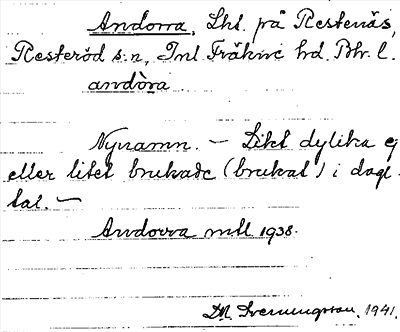 Andorra, Lht. på Restenäs,
Resteröd s:n, Inl. Fräkne hd. Bhr. l.
andòra.
Nynamn. – Likt dylika ej
eller litet brukade (brukat) i dagl.
tal. –
Andorra mtl 1938.
DA. Svenningsson. 1941.